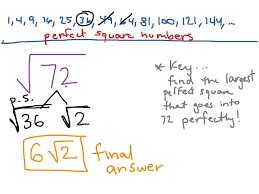 1, 4, 9, 16, 25, 36, 49, 64, 81, 100, 121, 144, ...
perfect square numbers
√72
p.s.
√36 √2
6√2 final answer
* Key...
find the largest
perfect square
that goes into
72 perfectly!